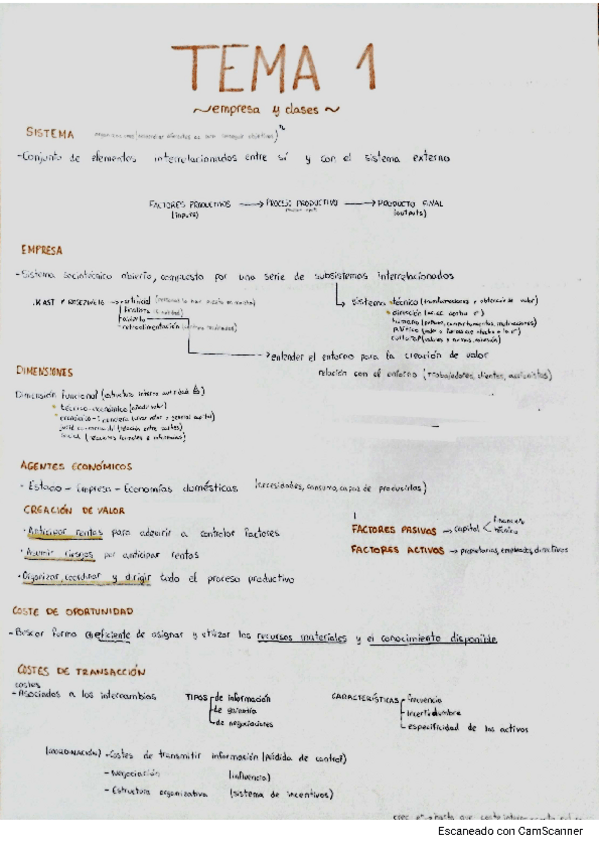 TEMA 1
~empresa y clases~
SISTEMA
-Conjunto de elementos interrelacionados entre sí y con el sistema externo
FACTORES PRODUCTIVOS → PROCESO PRODUCTIVO → PRODUCTO FINAL
(inputs) (outputs)
EMPRESA
-Sistema sociotécnico abierto, compuesto por una serie de subsistemas interrelacionados
.KAST Y ROSENZWEIG → artificial
finalista
abierto
retroalimentación
sistema técnico (transformaciones y obtención de valor)
dirección
humano
cultural (valores y normas, misión)
→ entender el entorno para la creación de valor
relación con el entorno (Trabajadores, clientes, accionistas)
DIMENSIONES
Dimensión funcional (estructura interna
técnico-económica (añadir valor)
social (relaciones formales e informales)
AGENTES ECONÓMICOS
- Estado - Empresa - Economías domésticas (necesidades, consumo, capaz de producirlas)
CREACIÓN DE VALOR
·Anticipar rentas para adquirir o controlar factores
·Asumir riesgos por anticipar rentas
·Organizar, coordinar y dirigir todo el proceso productivo
FACTORES PASIVOS → capital < financiero
técnico
FACTORES ACTIVOS → propietarios, empleados, directivos
COSTE DE OPORTUNIDAD
-Buscar forma eficiente de asignar y utilizar los recursos materiales y el conocimiento disponible
COSTES DE TRANSACCIÓN
costes
-Asociados a los intercambios
TIPOS de información
de garantía
de negociaciones
CARACTERÍSTICAS frecuencia
incertidumbre
especificidad de los activos
(COORDINACIÓN) -Costes de transmitir información (pérdida de control)
- Negociación (influencia)
- Estructura organizativa (sistema de incentivos)
Escaneado con CamScanner